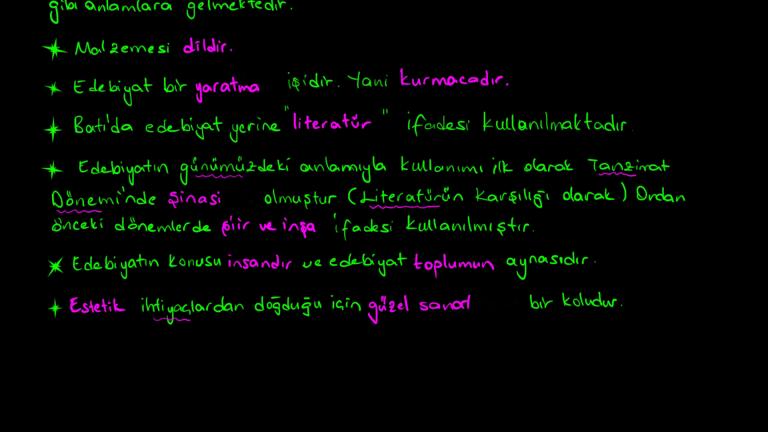 gibi anlamlara gelmektedir.
* Malzemesi dildir.
* Edebiyat bir yaratma işidir. Yani kurmacadır.
* Batı'da edebiyat yerine "literatür" ifadesi kullanılmaktadır.
* Edebiyatın günümüzdeki anlamıyla kullanımı ilk olarak Tanzimat
Dönemi'nde Şinasi olmuştur (Literatürün karşılığı olarak) Ondan
önceki dönemlerde şiir ve inşa ifadesi kullanılmıştır.
* Edebiyatın konusu insandır ve edebiyat toplumun aynasıdır.
* Estetik ihtiyaçlardan doğduğu için güzel sanat bir koludur.